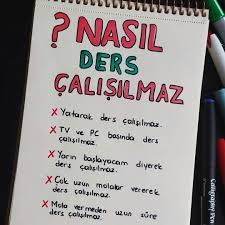 ? NASIL
DERS
ÇALIŞILMAZ
X Yatarak ders çalışılmaz.
X TV ve PC başında ders
çalışılmaz.
X Yarın başlayacağım diyerek
ders çalışılmaz.
X Çok uzun molalar vererek
ders çalışılmaz.
X Mola vermeden uzun süre
ders çalışılmaz.
Calligraphy Pen